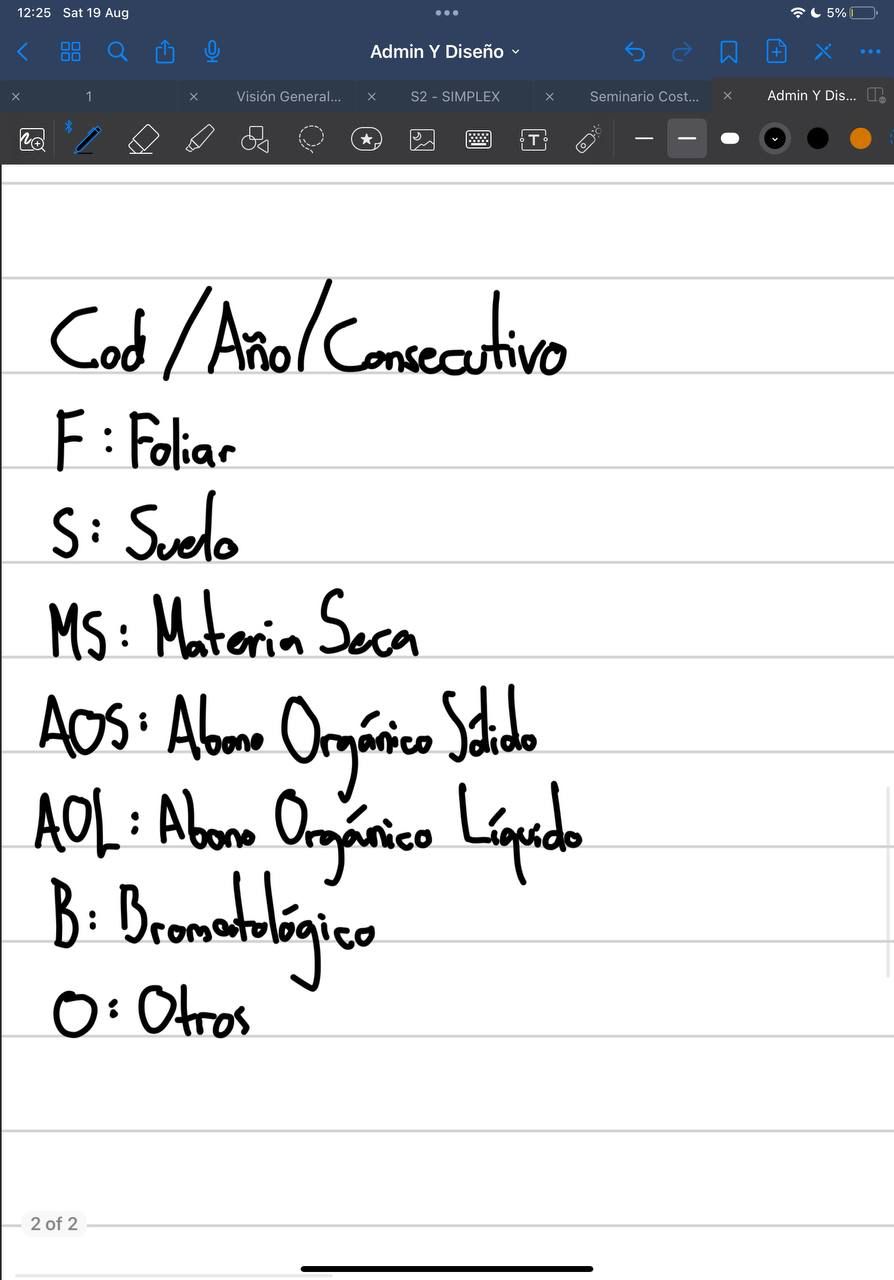 12:25 Sat 19 Aug 5%
Admin Y Diseño
1 Visión General... S2 - SIMPLEX Seminario Cost... Admin Y Dis...
Cod/Año/Consecutivo
F: Foliar
S: Suelo
MS: Materia Seca
AOS: Abono Orgánico Sólido
AOL: Abono Orgánico Líquido
B: Bromatológico
O: Otros
2 of 2